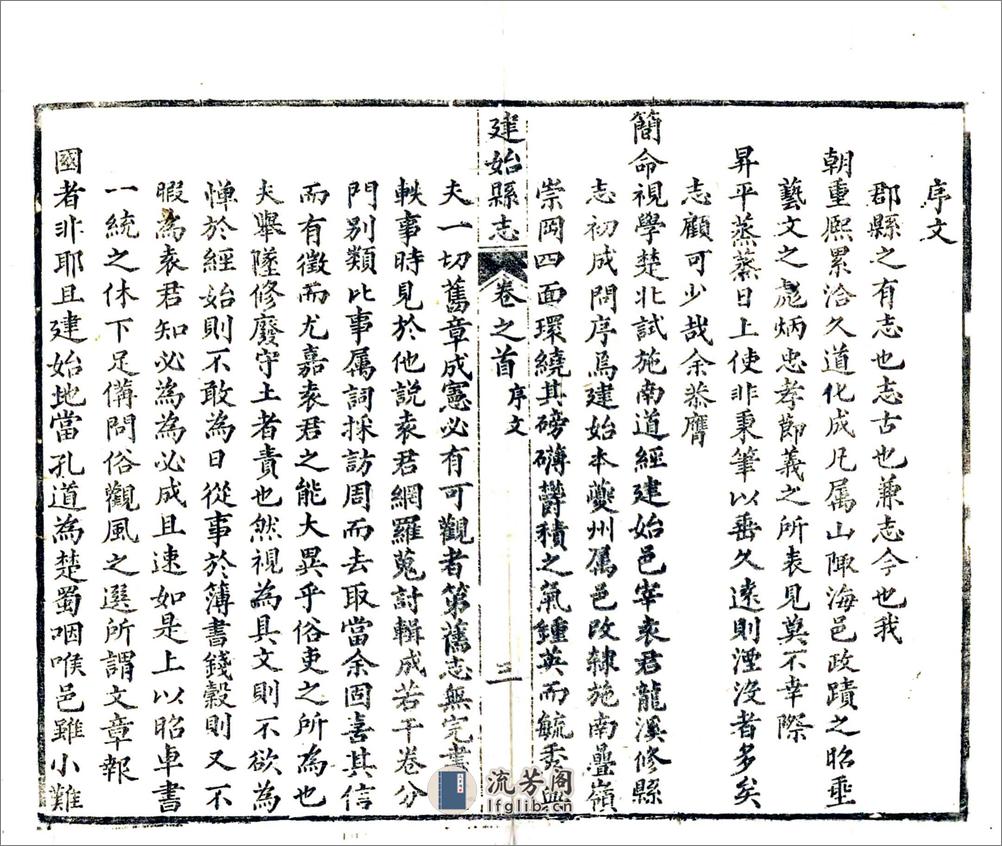 序文
郡縣之有志也志古也兼志今也我
朝重熙累洽久道化成凡属山陬海邑政蹟之昭垂
藝文之彪炳忠孝節義之所表見莫不幸際
昇平蒸蒸日上使非秉筆以垂久遠則湮没者多矣
志顧可少哉余恭膺
簡命視學楚北試施南道經建始邑宰袁君龍溪修縣
志初成問序焉建始本夔州属邑改隸施南疊嶺
崇岡四面環繞其磅礴欝積之氣鍾英而毓秀與
建始縣志 卷之首 序文 三
夫一切舊章成憲必有可觀者第舊志無完書
軼事時見於他説袁君網羅蒐討輯成若干卷分
門别類比事属詞採訪周而去取當余固喜其信
而有徵而尤嘉袁君之能大異乎俗吏之所為也
夫舉墜修廢守土者責也然視為具文則不欲為
憚於經始則不敢為日從事於簿書錢穀則又不
暇為袁君知必為為必成且速如是上以昭車書
一統之休下足備問俗觀風之選所謂文章報
國者非耶且建始地當孔道為楚蜀咽喉邑雖小難
流芳阁
lfglib.cn